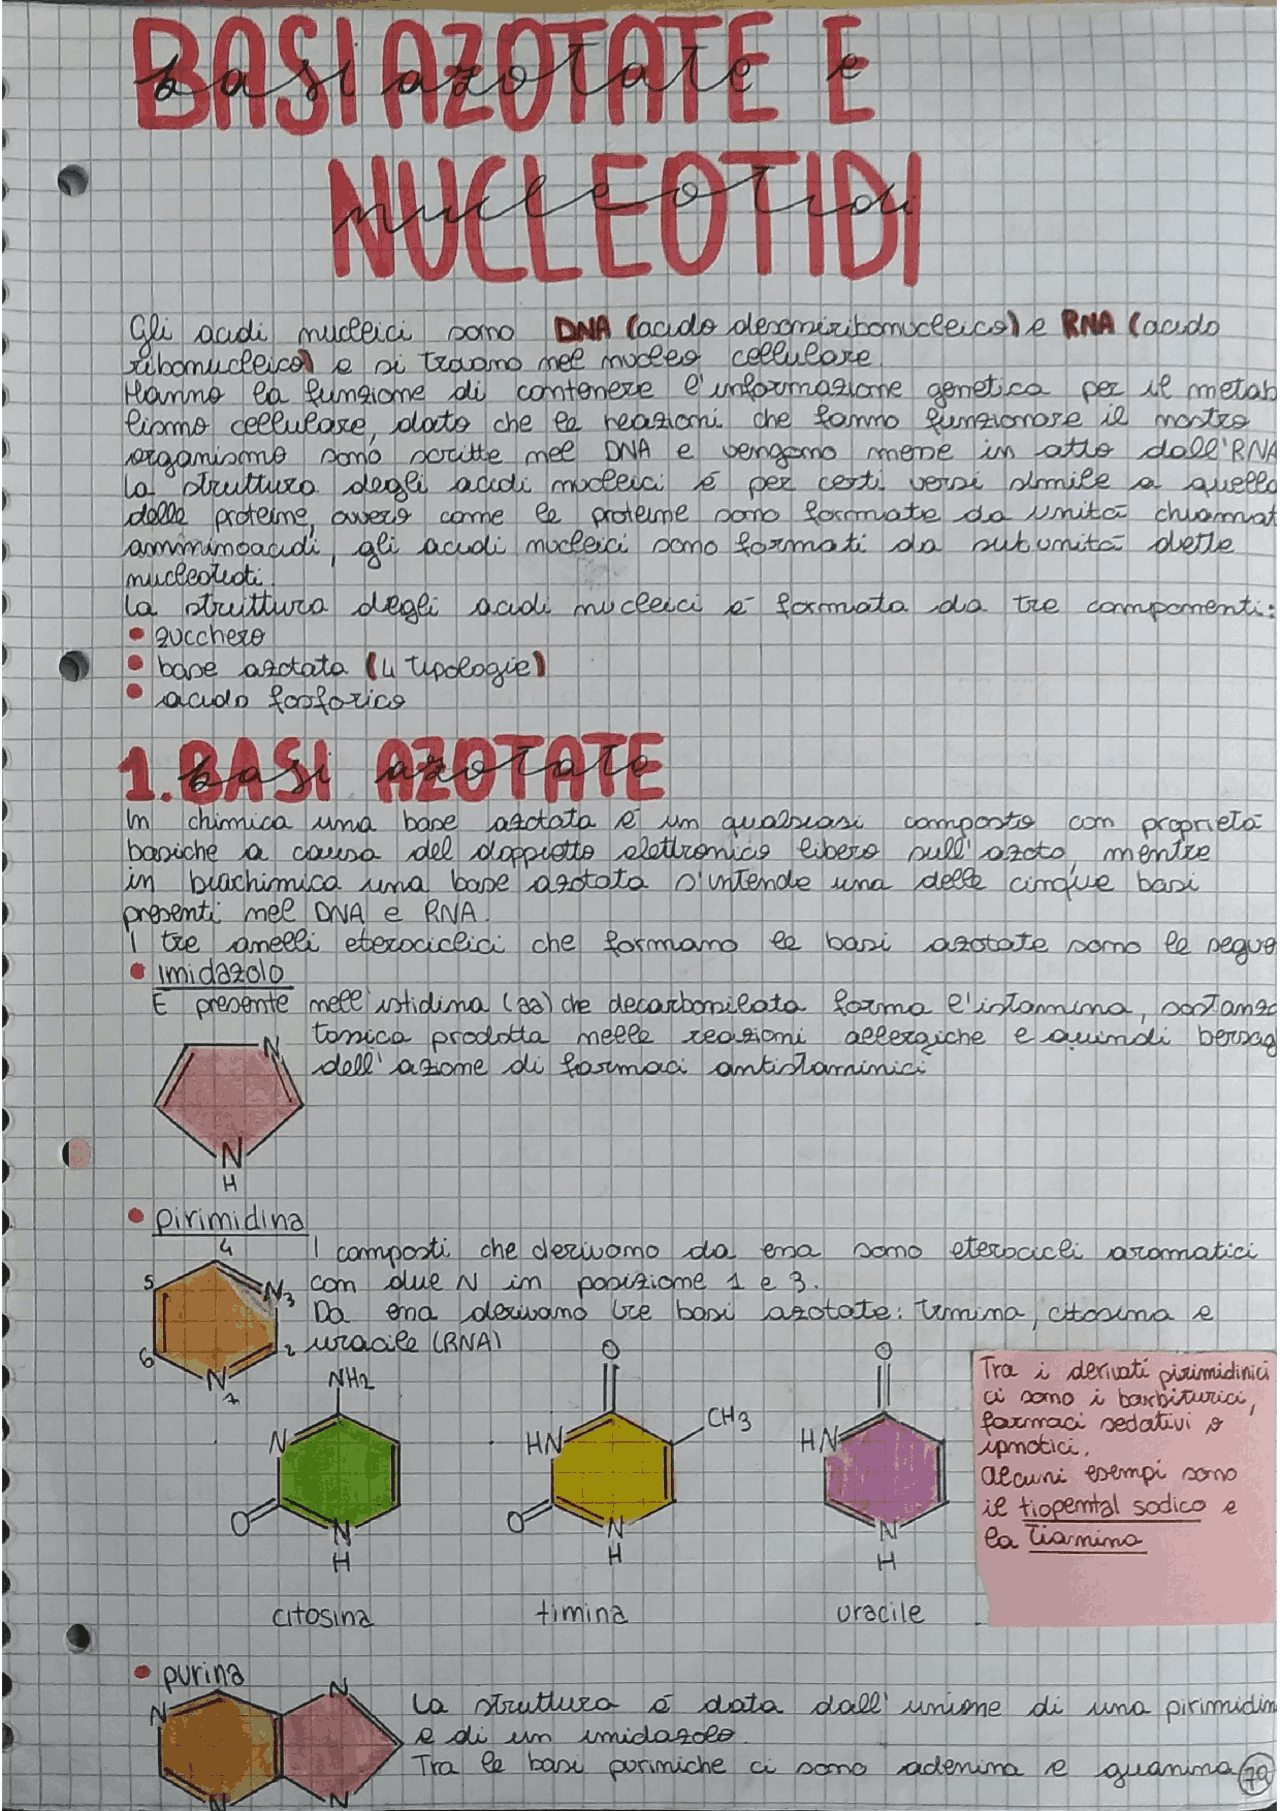 BASI AZOTATE E
basi azotate e
NUCLEOTIDI
nucleotidi
Gli acidi nucleici sono DNA (acido desossiribonucleico) e RNA (acido
ribonucleico) e si trovano nel nucleo cellulare.
Hanno la funzione di contenere l'informazione genetica per il metab
lismo cellulare, dato che le reazioni che fanno funzionare il nostro
organismo sono scritte nel DNA e vengono messe in atto dall'RNA
La struttura degli acidi nucleici è per certi versi simile a quella
delle proteine, ovvero come le proteine sono formate da unità chiamat
amminoacidi, gli acidi nucleici sono formati da subunità dette
nucleotidi.
La struttura degli acidi nucleici è formata da tre componenti:
• zucchero
• base azotata (4 tipologie)
• acido fosforico
1. BASI AZOTATE
basi azotate
In chimica una base azotata è un qualsiasi composto con proprietà
basiche a causa del doppietto elettronico libero sull'azoto, mentre
in biochimica una base azotata s'intende una delle cinque basi
presenti nel DNA e RNA.
I tre anelli eterociclici che formano le basi azotate sono le segue
• imidazolo
È presente nell'istidina (aa) che decarbossilata forma l'istamina, sostanza
tossica prodotta nelle reazioni allergiche e quindi bersag
dell'azione di farmaci antistaminici
N
N
H
• pirimidina
4
I composti che derivano da essa sono eterocicli aromatici
5
N 3
con due N in posizione 1 e 3.
Da essa derivano tre basi azotate: timina, citosina e
6
2
uracile (RNA)
N
1
NH2
N
O
N
H
citosina
O
CH3
HN
O
N
H
timina
O
HN
N
H
uracile
Tra i derivati pirimidinici
ci sono i barbiturici,
farmaci sedativi o
ipnotici.
Alcuni esempi sono
il tiopental sodico e
la tiamina
• purina
N
N
N
N
La struttura è data dall'unione di una pirimidin
e di un imidazolo.
Tra le basi puriniche ci sono adenina e guanina
79